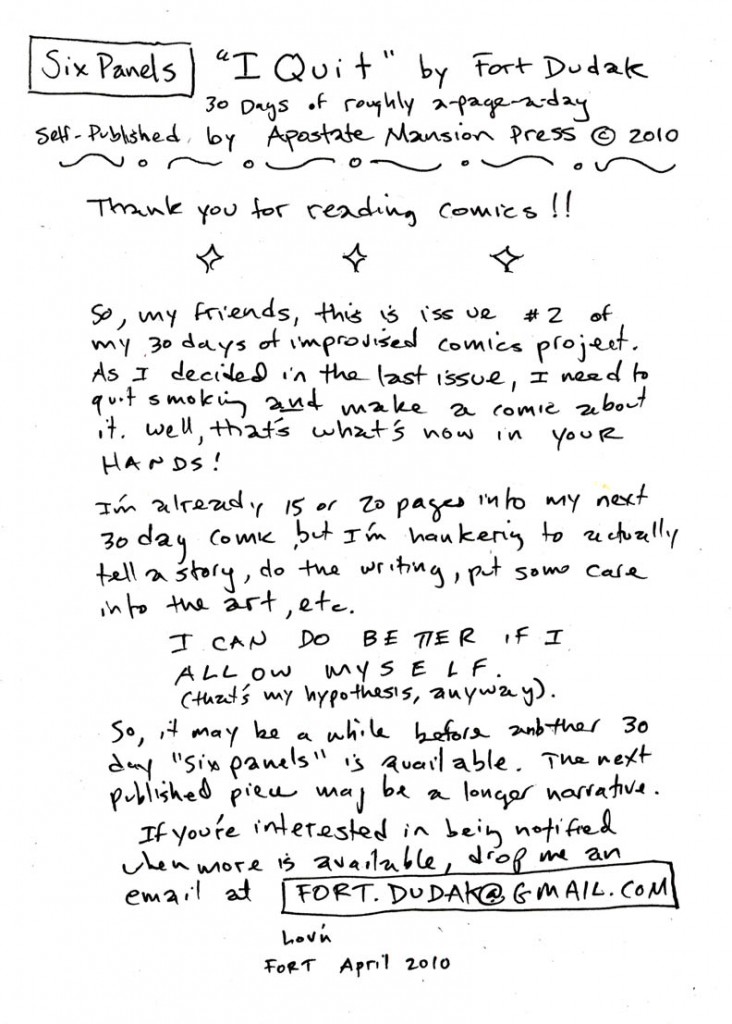 Six Panels "I Quit" by Fort Dudak
30 Days of roughly a-page-a-day
Self-Published by Apostate Mansion Press © 2010
Thank you for reading comics!!
So, my friends, this is issue #2 of
my 30 days of improvised comics project.
As I decided in the last issue, I need to
quit smoking and make a comic about
it. Well, that's what's now in YOUR
HANDS!
I'm already 15 or 20 pages into my next
30 day comic but I'm hankering to actually
tell a story, do the writing, put some care
into the art, etc.
I CAN DO BETTER IF I
ALLOW MYSELF.
(that's my hypothesis, anyway).
So, it may be a while before another 30
day "Six panels" is available. The next
published piece may be a longer narrative.
If you're interested in being notified
when more is available, drop me an
email at FORT.DUDAK@GMAIL.COM
Lovin
FORT April 2010